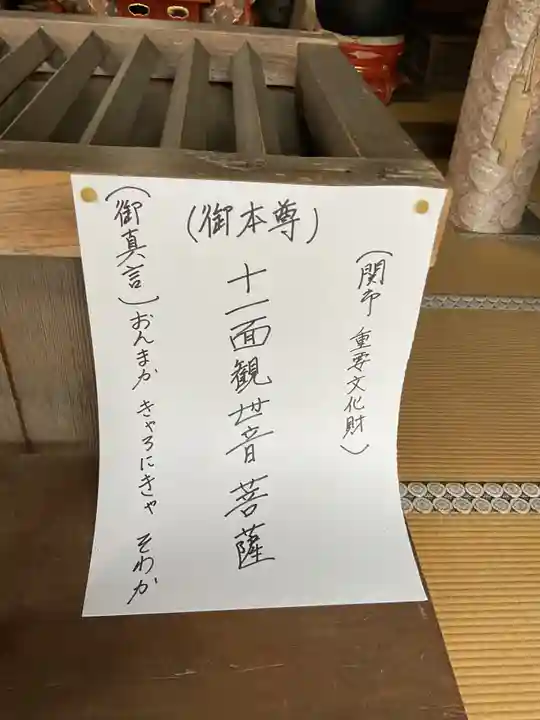 (関市 重要文化財)
(御本尊)
十一面観世音菩薩
(御真言)おんまか きゃろにきゃ そわか